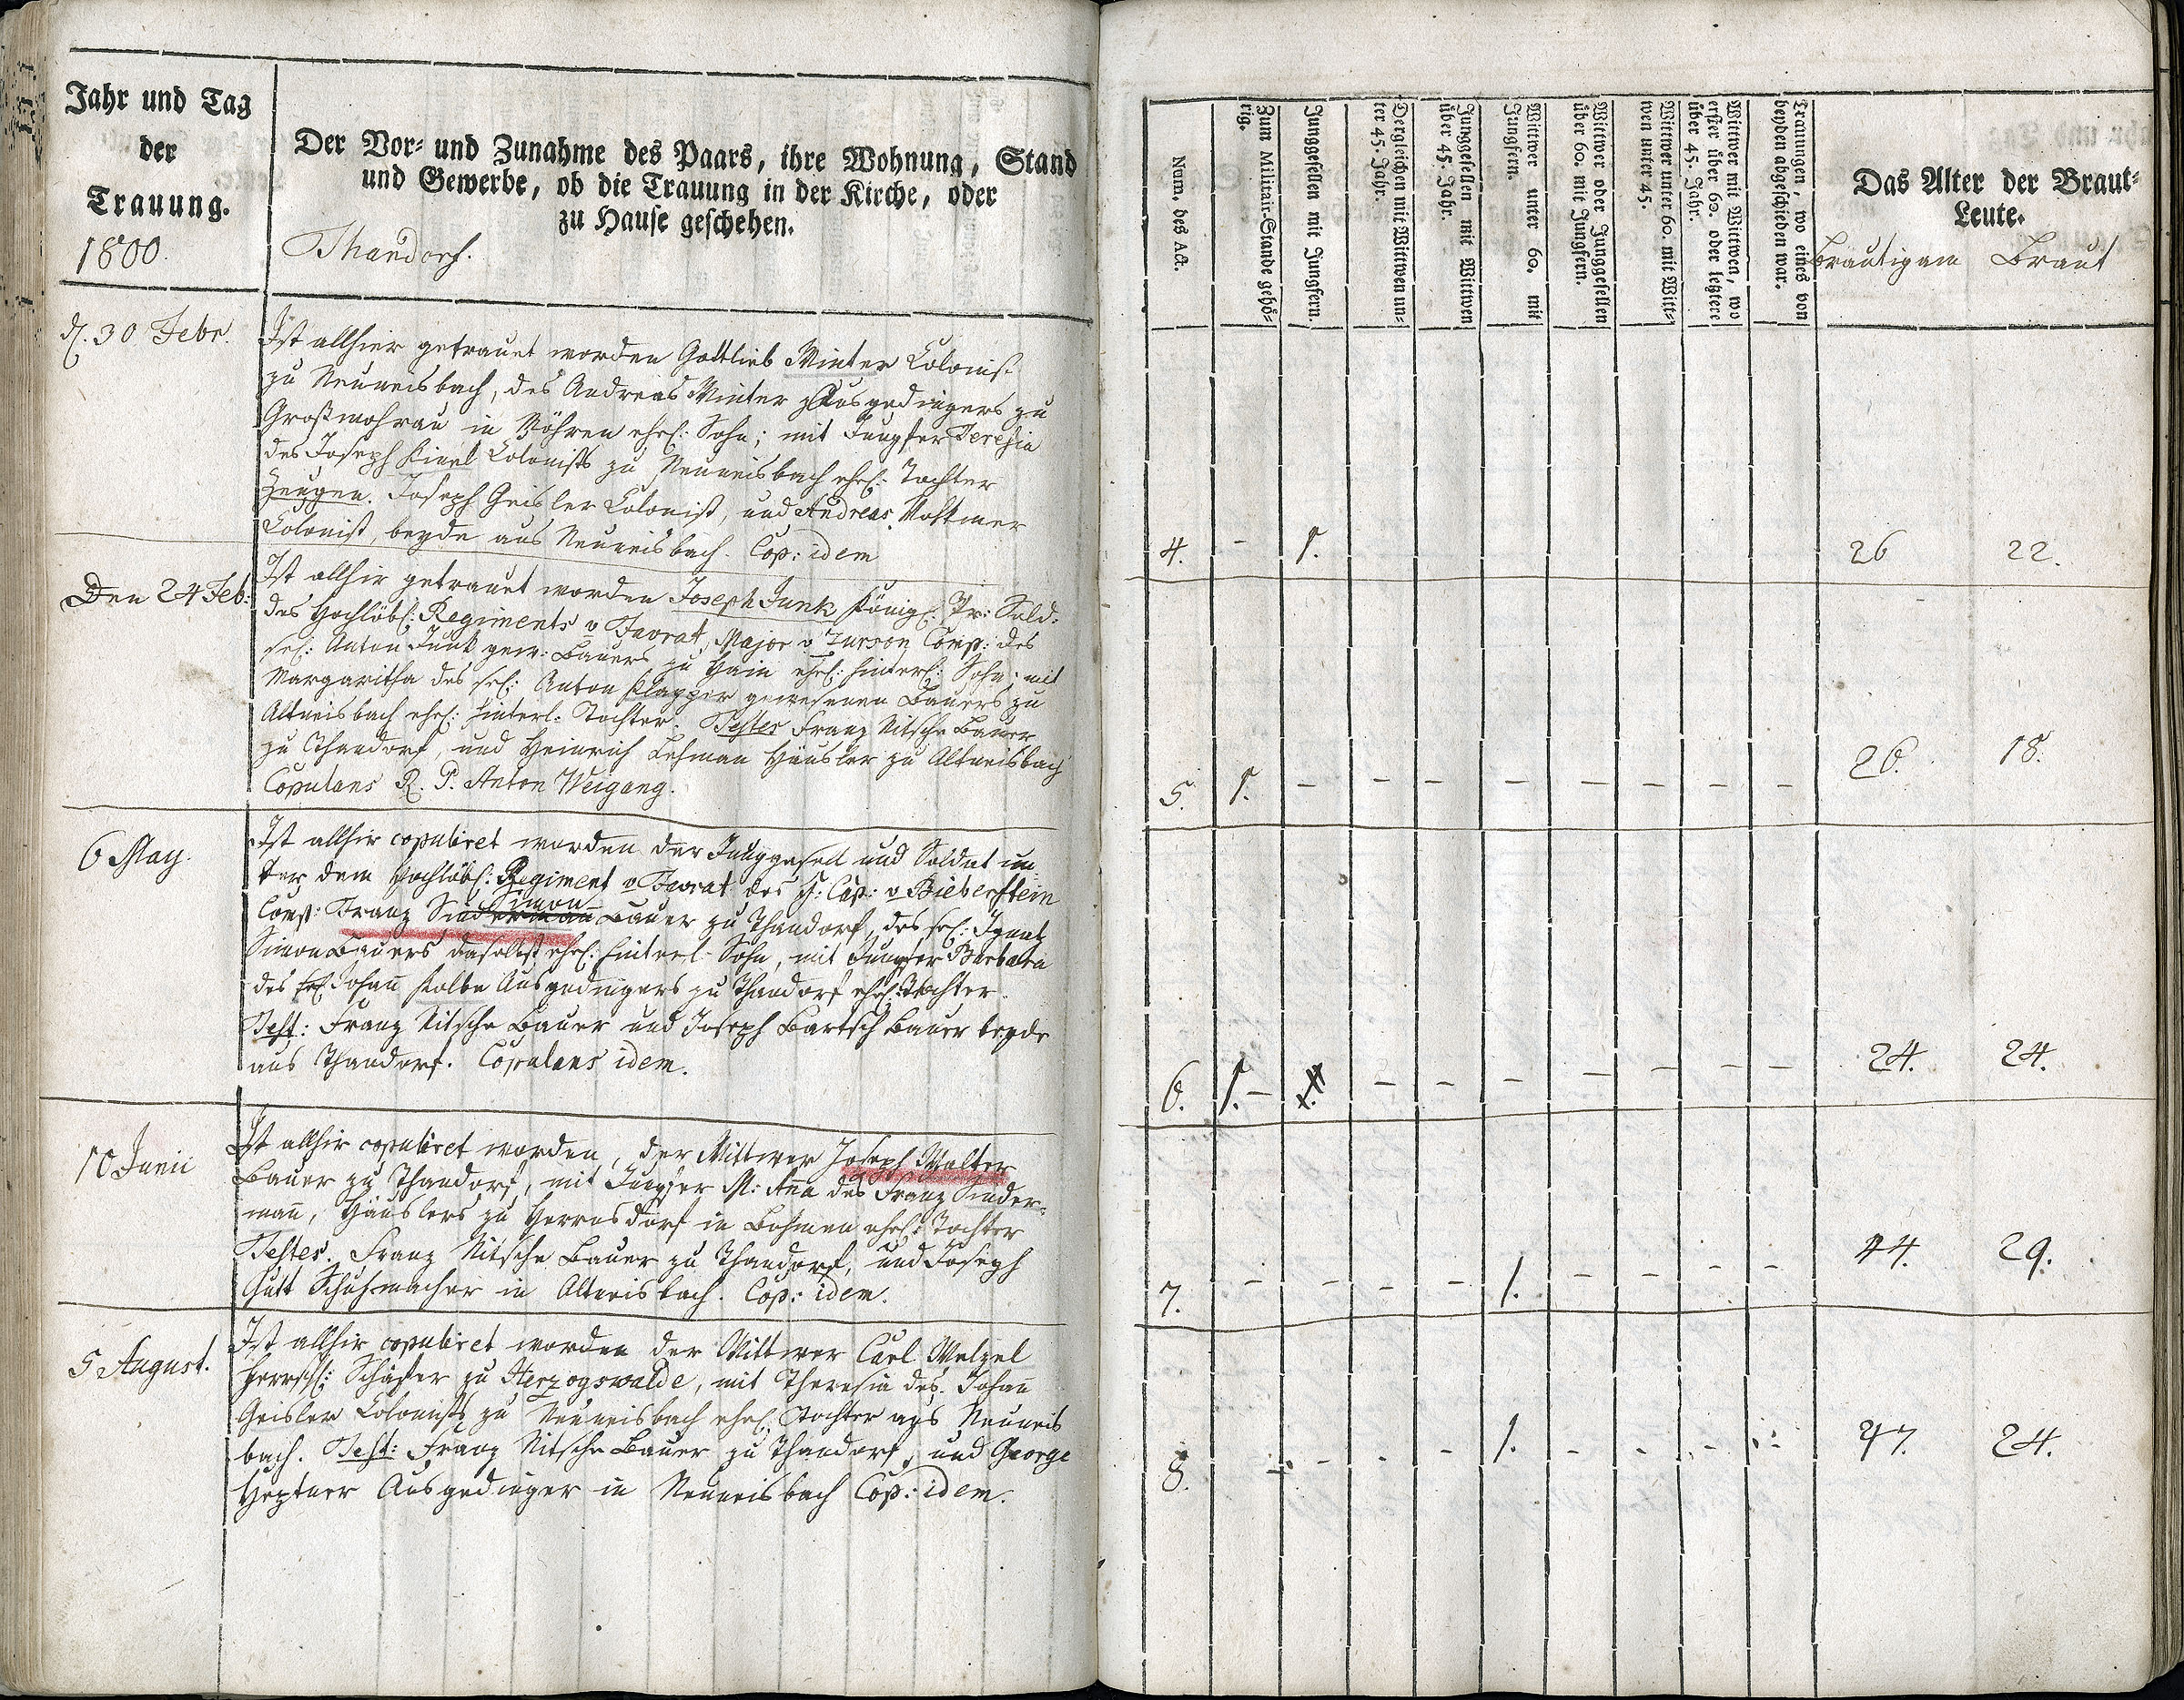 Jahr und Tag
der
Trauung.
1800.
Der Vor- und Zunahme des Paars, ihre Wohnung, Stand
und Gewerbe, ob die Trauung in der Kirche, oder
zu Hause geschehen.
Thandorf.
d. 30 Febr.
Ist allhier getrauet worden Gottlieb Winter Colonist
zu Neuneisbach, des Andreas Winter Ausgedingers zu
Großmohrau in Möhren ehel: Sohn; mit Jungfer Teresia
des Joseph Kinel Colonists zu Neuneisbach ehel: Tochter
Zeugen. Joseph Geisler Colonist, und Andreas Volkmer
Colonist, beyde aus Neuneisbach. Cop: idem
Den 24 Feb:
Ist allhir getrauet worden Joseph Junk Königl: Pr: Sold:
des Hochlöbl: Regiments v Favrat, Major v Zurson Comp: des
sel: Anton Junk gew: Bauers zu Hain ehel: hinterl: Sohn; mit
Margaritha des sel: Anton Klapper gewesenen Bauers zu
Altneisbach ehel: hinterl: Tochter. Testes Franz Nitsche Bauer
zu Thandorf, und Heinrich Lehman Häusler zu Altneisbach
Copulans R. P. Anton Weigang.
6 May.
Ist allhir copuliret worden der Junggesell und Soldat un-
ter dem Hochlöbl: Regiment v Favrat des H: Cap: v Bieberstein
Comp: Franz Sindermañ Simon Bauer zu Thandorf, des sel: Ignatz
Simon Bauers daselbst ehel: hinterl. Sohn, mit Jungfer Barbara
des sel Johañ Kolbe Ausgedingers zu Thandorf ehel: Tochter.
Test: Franz Nitsche Bauer und Joseph Bartsch Bauer beyde
aus Thandorf. Copulans idem.
10 Junii
Ist allhir copuliret worden, der Wittwer Joseph Walter
Bauer zu Thandorf, mit Jungfer M: Aña des Franz Sinder-
mañ, Häuslers zu Herrnsdorf in Böhmen ehel: Tochter
Testes. Franz Nitsche Bauer zu Thandorf, und Joseph
Gütt Schuhmacher in Altneisbach. Cop: idem.
5 August.
Ist allhir copuliret worden der Wittwer Carl Welzel
herrschl: Schäfer zu Herzogswalde, mit Theresia des Johañ
Geisler Colonists zu Neuneisbach ehel. Tochter aus Neuneis
bach. Test: Franz Nitsche Bauer zu Thandorf, und George
Heptner Ausgedinger in Neuneisbach Cop: idem.
Num. des Act.
Zum Militair-Stande gehö-
rig.
Junggesellen mit Jungfern.
Dergleichen mit Wittwen un-
ter 45. Jahr.
Junggesellen mit Wittwen
über 45. Jahr.
Wittwer unter 60. mit
Jungfern.
Wittwer oder Junggesellen
über 60. mit Jungfern.
Wittwer unter 60. mit Witt-
wen unter 45.
Wittwer mit Wittwen, wo
erster über 60. oder letztere
über 45. Jahr.
Trauungen, wo eines von
beyden abgeschieden war.
Das Alter der Braut-
Leute.
Bräutigam Braut
4. - 1. 26 22.
5. 1. - - - - - - - - 26. 18.
6. 1. - - - - - - - - 24. 24.
7. - - - - 1. - - - - 44. 29.
8. - - - - 1. - - - - 47. 24.